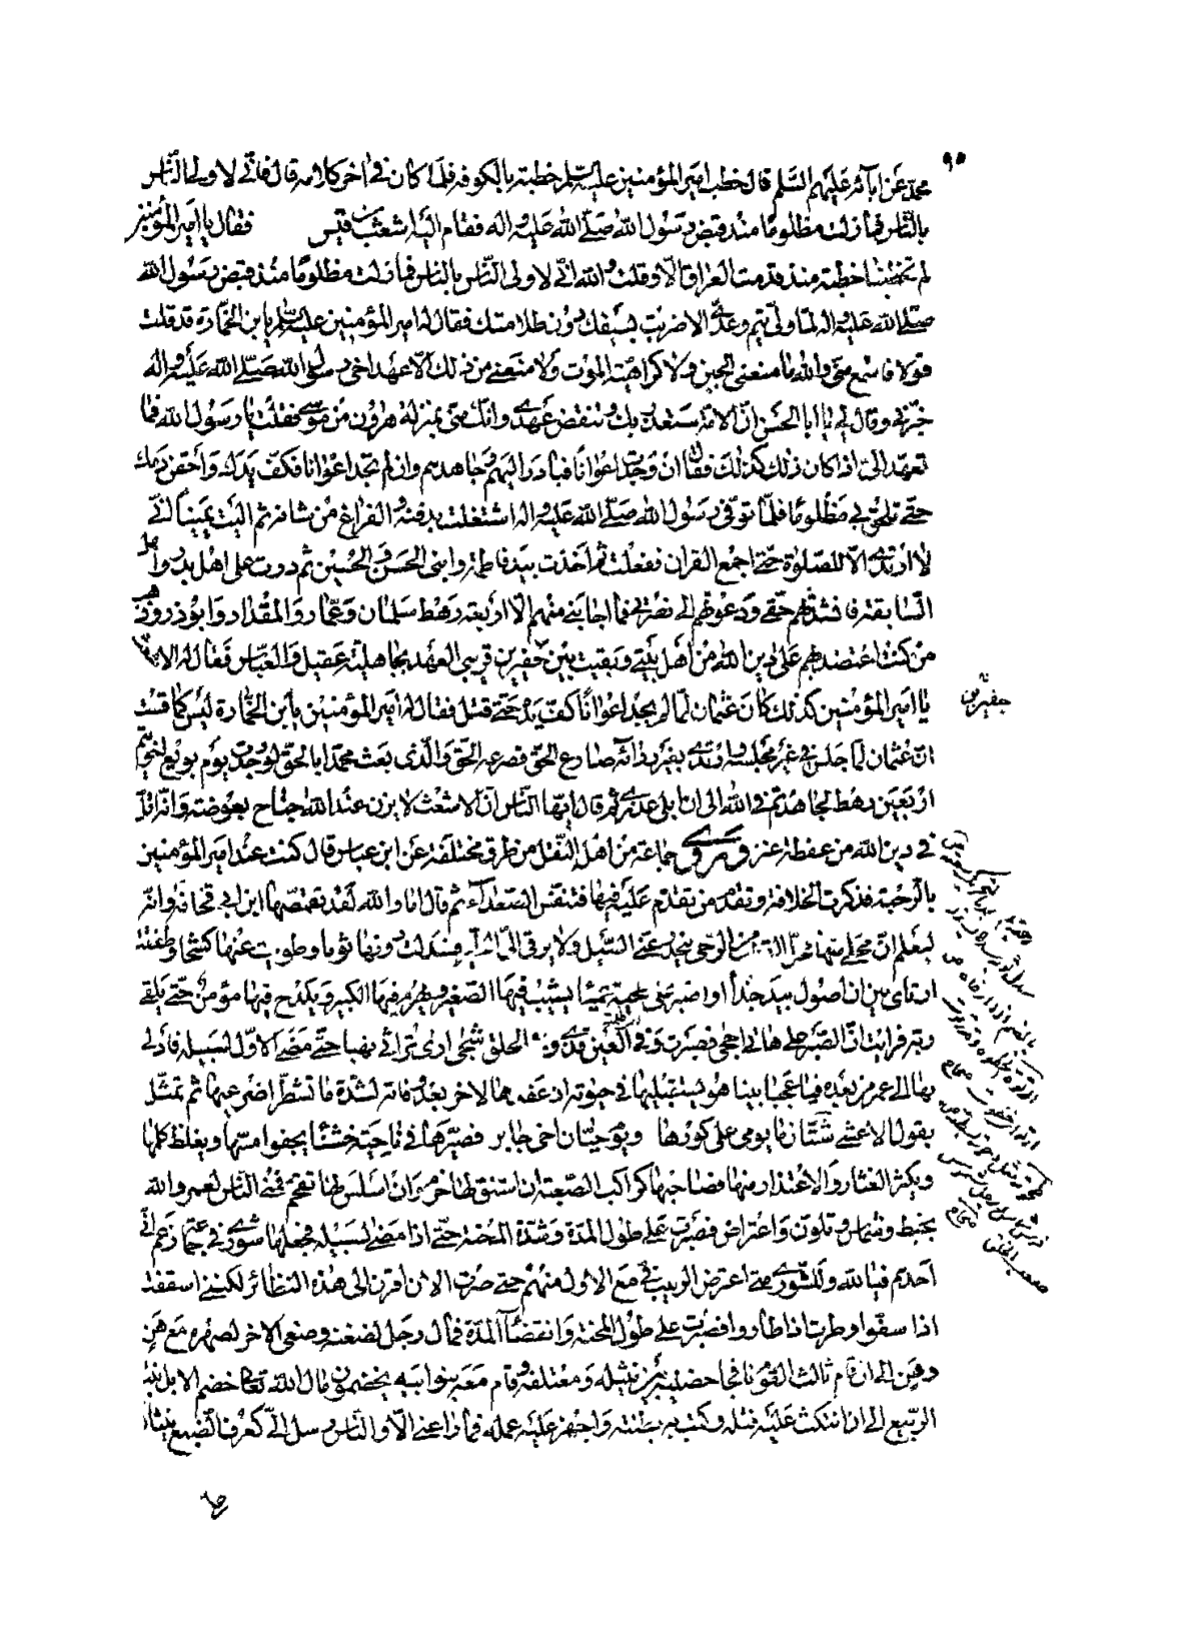 محمد عن ابائه عليهم السلم قال خطب امير المؤمنين عليه السلم خطبة بالكوفة فلما كان في اخر كلامه قال فاني لاولى الناس
بالناس فما زلت مظلوما منذ قبض رسول الله صلى الله عليه واله فقام اليه اشعث بن قيس فقال يا امير المؤمنين
لم تخطبنا خطبة منذ قدمت العراق الا وقلت والله اني لاولى الناس بالناس فما زلت مظلوما منذ قبض رسول الله
صلى الله عليه واله لما ولى تيم وعدي الا ضربت بسيفك دون ظلامتك فقال له امير المؤمنين عليه السلم يا بن الخمارة قد قلت
قولا فاسمع مني والله ما منعني الجبن ولا كراهية الموت ولا منعني من ذلك الا عهد اخي رسول الله صلى الله عليه واله
خبرني وقال لي يا ابا الحسن ان الامة ستغدر بك وتنقض عهدي وانك مني بمنزلة هرون من موسى فقلت يا رسول الله فما
تعهد الي اذا كان ذلك كذلك فقال ان وجدت اعوانا فبادر اليهم وجاهدهم وان لم تجد اعوانا فكف يدك واحقن دمك
حتى تلحق بي مظلوما فلما توفي رسول الله صلى الله عليه واله اشتغلت بدفنه والفراغ من شانه ثم اليت يمينا اني
لا ارتدي الا للصلوة حتى اجمع القران ففعلت ثم اخذت بيد فاطمة وابني الحسن والحسين ثم درت على اهل بدر واهل
السابقة فانشدتهم حقي ودعوتهم الى نصرتي فما اجابني منهم الا اربعة رهط سلمان وعمار والمقداد وابوذر وذهب
من كنت اعتضد بهم على دين الله من اهل بيتي وبقيت بين حفيرين قريبي العهد بجاهلية عقيل والعباس فقال له الاشعث
يا امير المؤمنين كذلك كان عثمان لما لم يجد اعوانا كف يده حتى قتل فقال له امير المؤمنين يا بن الخمارة ليس كما قست
ان عثمان لما جلس في غير مجلسه وارتدى بغير ردائه صارع الحق فصرعه الحق والذي بعث محمدا بالحق لو وجدت يوم بويع اخو تيم
اربعين رهط لجاهدتهم في الله الى ان ابلى عذري ثم قال ايها الناس ان الاشعث لا يزن عند الله جناح بعوضة وانه اقل
في دين الله من عفطة عنز وروى جماعة من اهل النقل من طرق مختلفة عن ابن عباس قال كنت عند امير المؤمنين
بالرحبة فذكرت الخلافة وتقدم من تقدم عليه فيها فتنفس الصعداء ثم قال اما والله لقد تقمصها ابن ابي قحافة وانه
ليعلم ان محلي منها محل القطب من الرحى ينحدر عني السيل ولا يرقى الي الطير فسدلت دونها ثوبا وطويت عنها كشحا وطفقت
ارتاي بين ان اصول بيد جذاء او اصبر على طخية عمياء يشيب فيها الصغير ويهرم فيها الكبير ويكدح فيها مؤمن حتى يلقى
ربه فرايت ان الصبر على هاتي احجى فصبرت وفي العين قذى وفي الحلق شجى ارى تراثي نهبا حتى مضى الاول لسبيله فادلى
بها الى عمر من بعده فيا عجبا بينا هو يستقيلها في حيوته اذ عقدها لاخر بعد وفاته لشدة ما تشطرا ضرعيها ثم تمثل
بقول الاعشى شتان ما يومي على كورها ويوم حيان اخي جابر فصيرها في ناحية خشناء يجفو مسها ويغلظ كلمها
ويكثر العثار والاعتذار منها فصاحبها كراكب الصعبة ان اشنق لها خرم وان اسلس لها تقحم فمني الناس لعمر والله
بخبط وشماس وتلون واعتراض فصبرت على طول المدة وشدة المحنة حتى اذا مضى لسبيله فجعلها شورى في جماعة زعم اني
احدهم فيا لله وللشورى متى اعترض الريب في مع الاول منهم حتى صرت الان اقرن الى هذه النظائر لكني اسففت
اذا سفوا وطرت اذا طاروا فصبرت على طول المحنة وانقضاء المدة فمال رجل لضغنه وصغى الاخر لصهره مع هن
وهن الى ان قام ثالث القوم نافجا حضنيه بين نثيله ومعتلفه وقام معه بنو ابيه يخضمون مال الله تعالى خضم الابل نبتة
الربيع الى ان انتكث عليه فتله وكبت به بطنته واجهز عليه عمله فما راعني الا والناس رسل الي كعرف الضبع ينثال
حفيرين